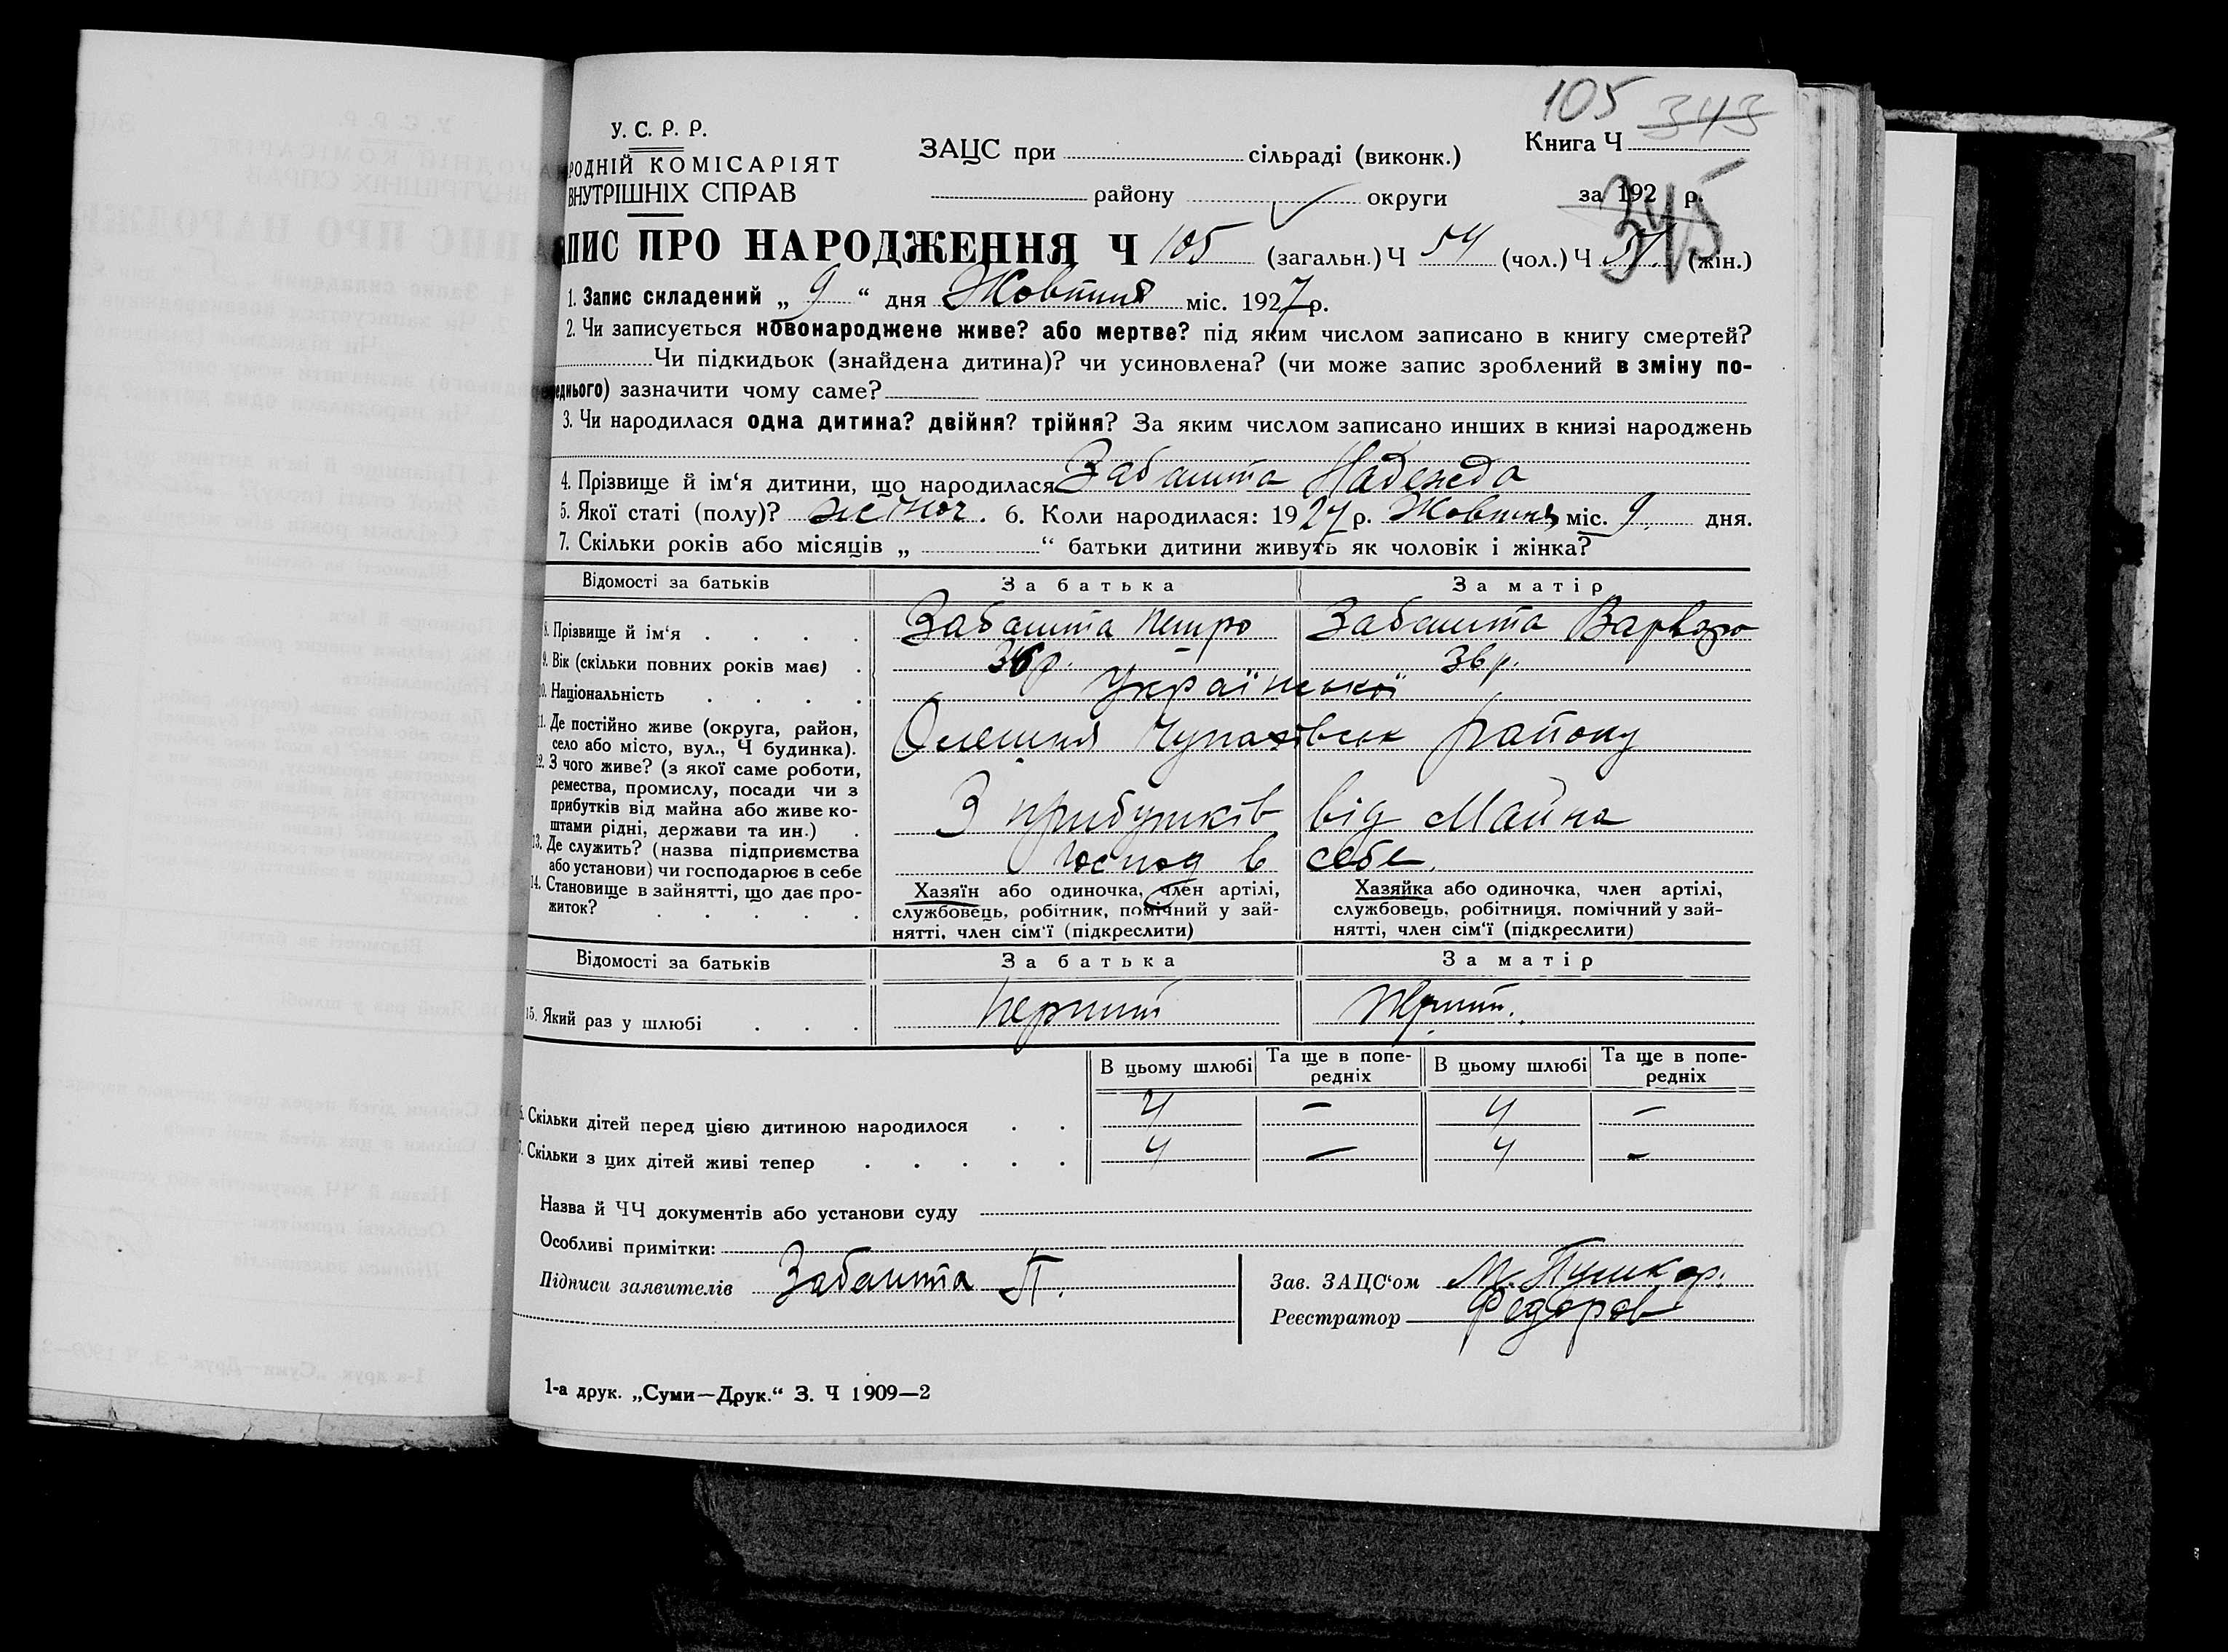 105 343
У. С. Р. Р.
РОДНІЙ КОМІСАРІЯТ
ВНУТРІШНІХ СПРАВ
ЗАЦС при сільраді (виконк.)
району округи
Книга Ч
за 192 р.
345
ПИС ПРО НАРОДЖЕННЯ Ч 105 (загальн.) Ч 54 (чол.) Ч 51. (жін.)
1. Запис складений „ 9 “ дня Жовтня міс. 1927 р.
2. Чи записується новонароджене живе? або мертве? під яким числом записано в книгу смертей?
Чи підкидьок (знайдена дитина)? чи усиновлена? (чи може запис зроблений в зміну по-
реднього) зазначити чому саме?
3. Чи народилася одна дитина? двійня? трійня? За яким числом записано инших в книзі народжень
4. Прізвище й ім‘я дитини, що народилася Забашта Надежда
5. Якої статі (полу)? жіноч. 6. Коли народилася: 1927 р. Жовтня міс. 9. дня.
7. Скільки років або місяців „ “ батьки дитини живуть як чоловік і жінка?
Відомості за батьків За батька За матір
8. Прізвище й ім‘я Забашта Петро Забашта Варвара
9. Вік (скільки повних років має) 36 р. 36 р.
10. Національність Української
11. Де постійно живе (округа, район,
село або місто, вул., Ч будинка). Олешня Чупахівськ району
12. З чого живе? (з якої саме роботи,
ремества, промислу, посади чи з
прибутків від майна або живе ко-
штами рідні, держави та ин.) З прибутків від Майна
13. Де служить? (назва підприємства
або установи) чи господарює в себе Господ в себе.
14. Становище в зайнятті, що дає про-
житок?
Хазяїн або одиночка, член артілі,
службовець, робітник, помічний у зай-
нятті, член сім‘ї (підкреслити)
Хазяйка або одиночка, член артілі,
службовець, робітниця, помічний у зай-
нятті, член сім‘ї (підкреслити)
Відомості за батьків За батька За матір
15. Який раз у шлюбі перший перш.
В цьому шлюбі Та ще в попе-
редніх В цьому шлюбі Та ще в попе-
редніх
6. Скільки дітей перед цією дитиною народилося 4 — 4 —
7. Скільки з цих дітей живі тепер 4 — 4 —
Назва й ЧЧ документів або установи суду
Особливі примітки:
Підписи заявителів Забашта П.
Зав. ЗАЦС‘ом М. Пушкар.
Реєстратор Федоров
1-а друк. „Суми—Друк.“ З. Ч 1909—2